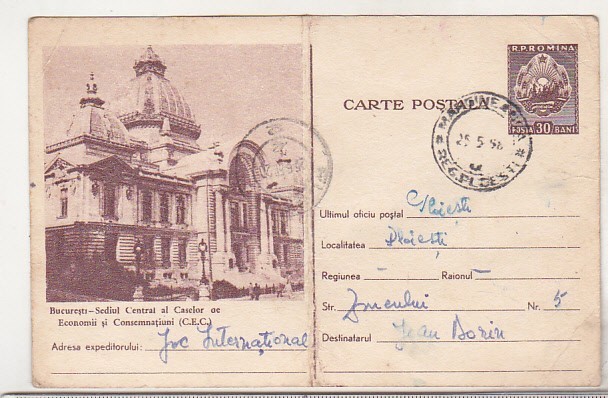 CARTE POSTALĂ
R.P.ROMINA
POSTA 30 BANI
REG.PLOESTI
București-Sediul Central al Caselor de
Economii și Consemnațiuni (C.E.C.)
Adresa expeditorului: Internațional
Ultimul oficiu poștal Ploiești
Localitatea Ploiești
Regiunea – Raionul –
Str. Zmeului Nr. 5
Destinatarul Jean Dorin